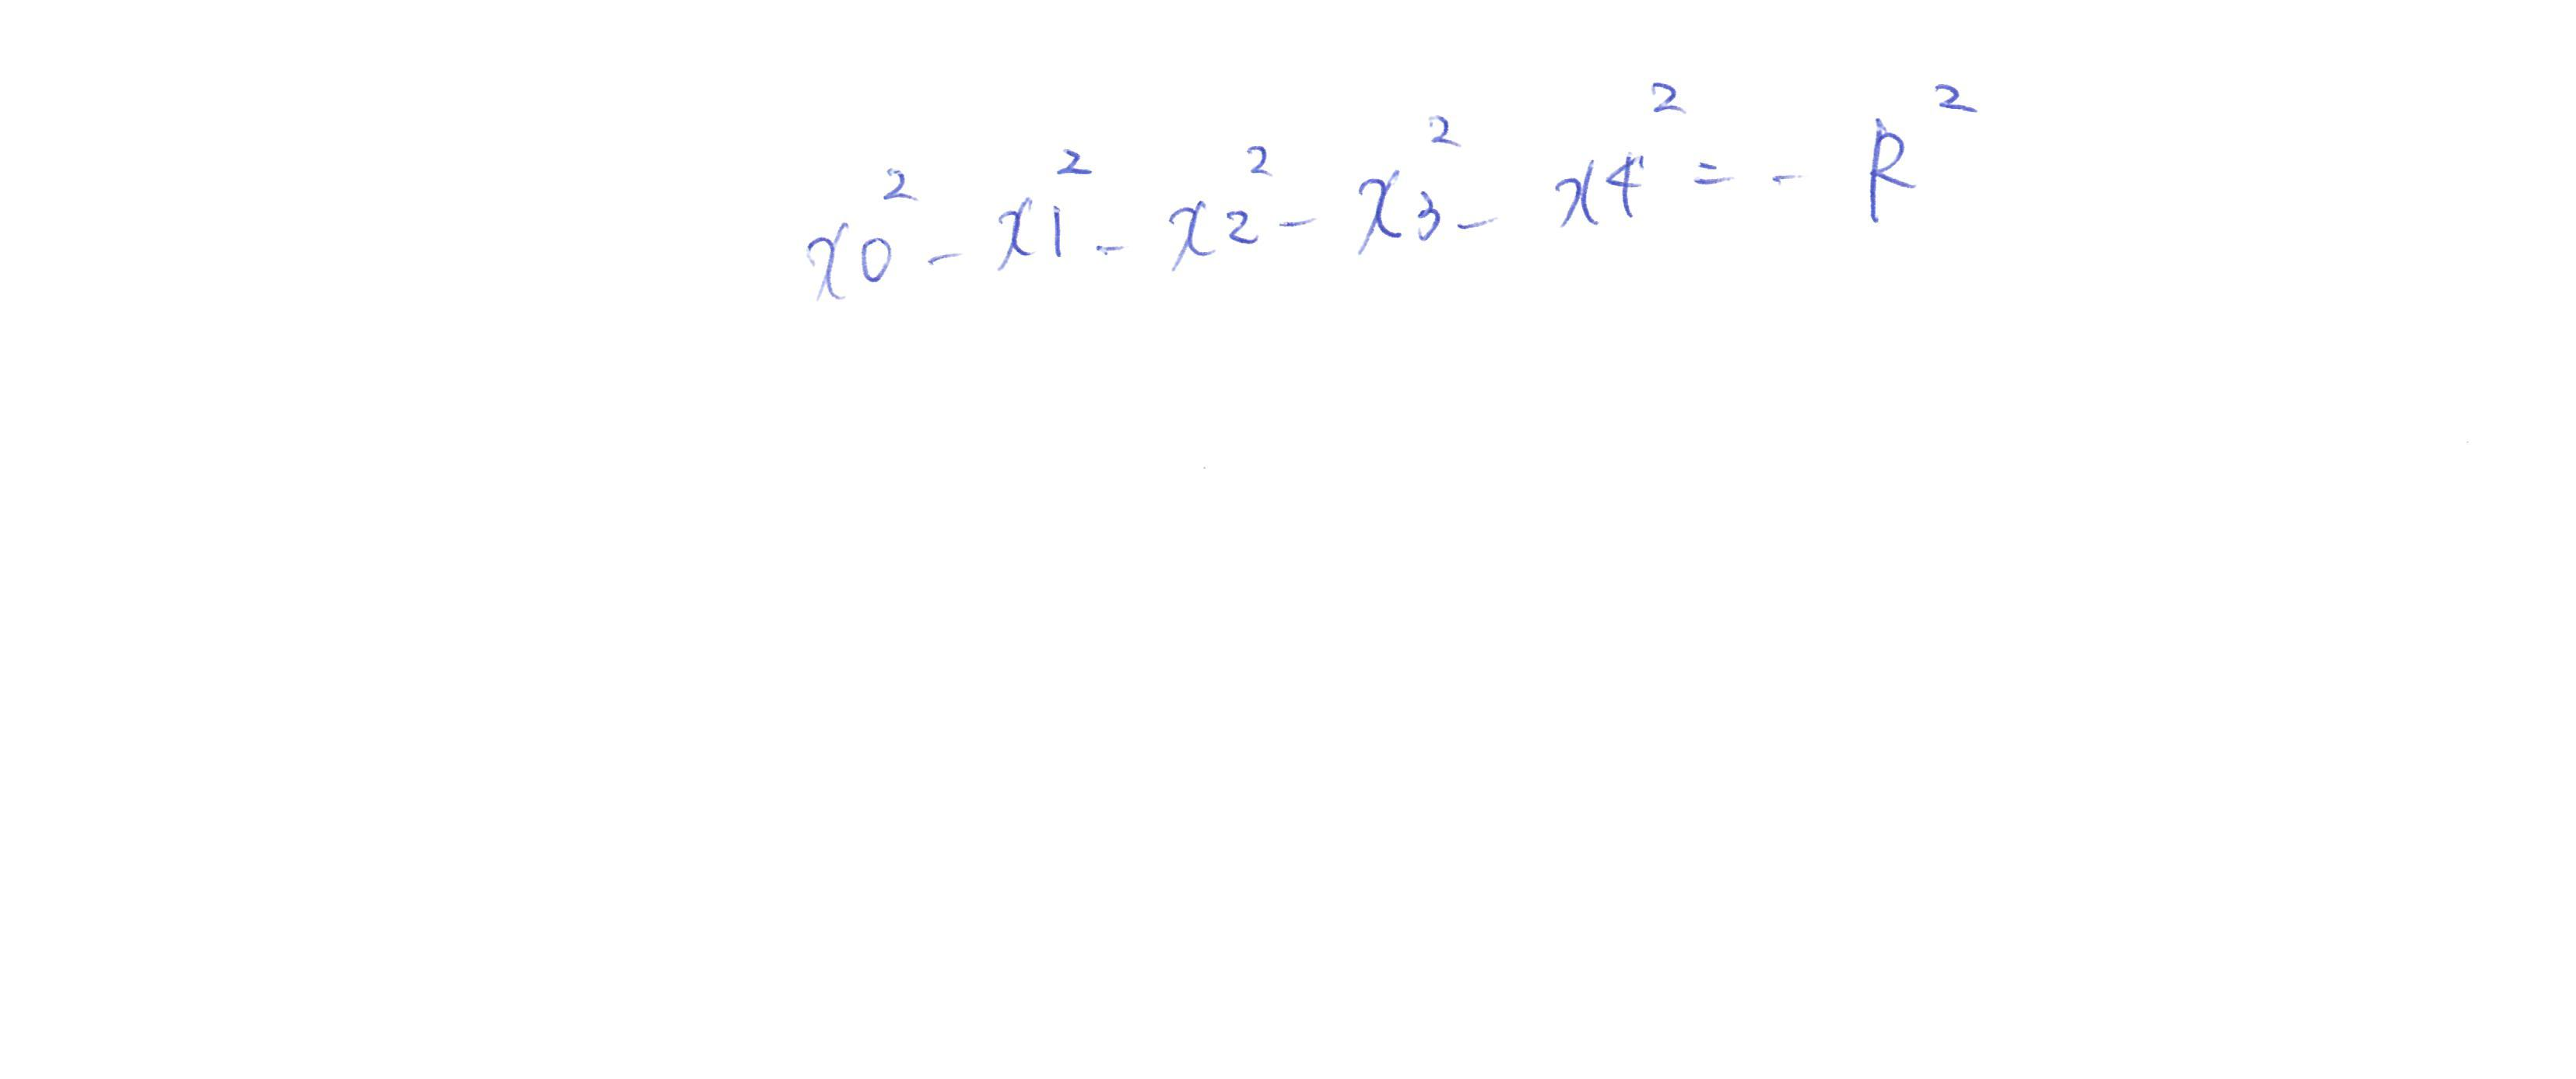 x0² - x1² - x2² - x3² - x4² = - R²